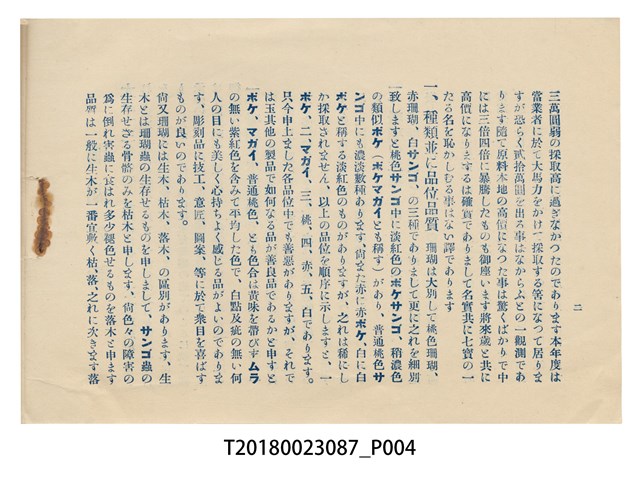 二
三萬圓弱の採取高に過ぎなかつたのであります本年度は
當業者に於て大馬力をかけて採取する筈になつて居りま
すが恐らく貳拾萬圓を出る事はなからふとの一觀測であ
ります隨て原料本地の高價になつた事は驚くばかりで中
には三倍四倍に暴騰したものも御座います將來歲と共に
高價になりまするは確實でありまして名實共に七寶の一
たる名を恥かしむる事はない譯であります
一、種類並に品位品質 珊瑚は大別して桃色珊瑚、
赤珊瑚、白サンゴ、の三種でありまして更に之れを細別
一致しますと桃色サンゴ中に淡紅色のボケサンゴ、稍濃色
の類似ボケ(ボケマガイとも稱す)があり、普通桃色サ
ンゴ中にも濃淡數種あります、尙また赤に赤ボケ、白に白
ボケと稱する淡紅色のものがありますが、之れは稀にし
か採取されません、以上の品位を順序に示しますと、一
ボケ、二、マガイ、三、桃、四、赤、五、白であります。
只今申上ました各品位中でも善惡がありますが、それで
は玉其他の製品で如何なる品が善良品であるかと申すと
ボケ、マガイ、普通桃色、とも色合は黃味を帶びずムラ
の無い紫紅色を含みて平均した色で、白點及疵の無い何
人の目にも美しく心持ちよく感じる品がよいのでありま
す、彫刻品に技工、意匠、圖案、等に於て衆目を喜ばす
ものが良いのであります。
尙又珊瑚には生木、枯木、落木、の區別があります、生
木とは珊瑚蟲の生存せるものを申しまして、サンゴ蟲の
生存せざる骨骼のみを枯木と申します、尙色々の障害の
爲に倒れ害蟲に食はれ多少褪色せるものを落木と申ます
品質は一般に生木が一番宜敷く枯、落、之れに次ぎます落
T20180023087_P004